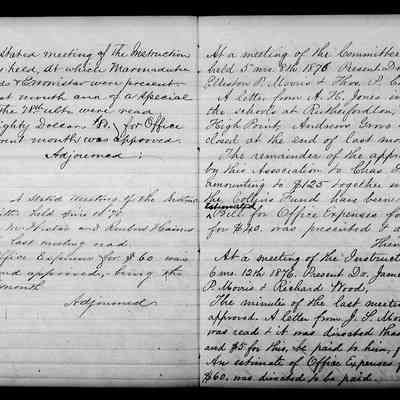 stated meeting of the Instruction
held, at which Marmaduke
were present
last month and of a Special
the 28th ulto were read
Eighty Dollars $80. for Office
month was approved.
Adjourned.
A Stated Meeting of the Instruc
held
Wistar and Reuben Haines
last meeting read
Office Expenses for $60. was
and approved, being the
month
Adjourned
At a meeting of the Committee
held 5 mo. 8th 1876. Present
Elliston P. Morris & Thos. P. C
A letter from A. H. Jones in
the schools at Rutherfordton,
High Point, Andersons Grove
closed at the end of last mo
The remainder of the appro
by this Association to Chas.
amounting to $125 together
the Collins Fund have been
Estimated
Bill for Office Expenses fo
for $40. was presented & a
Then
At a meeting of the Instruc
6 mo. 12th 1876. Present Do. James
P. Morris & Richard Wood,
The minutes of the last meeti
approved. A letter from J. S. Mo
was read & it was directed tha
and $5 for this, be paid to him,
An estimate of Office Expenses f
$60. was directed to be paid.